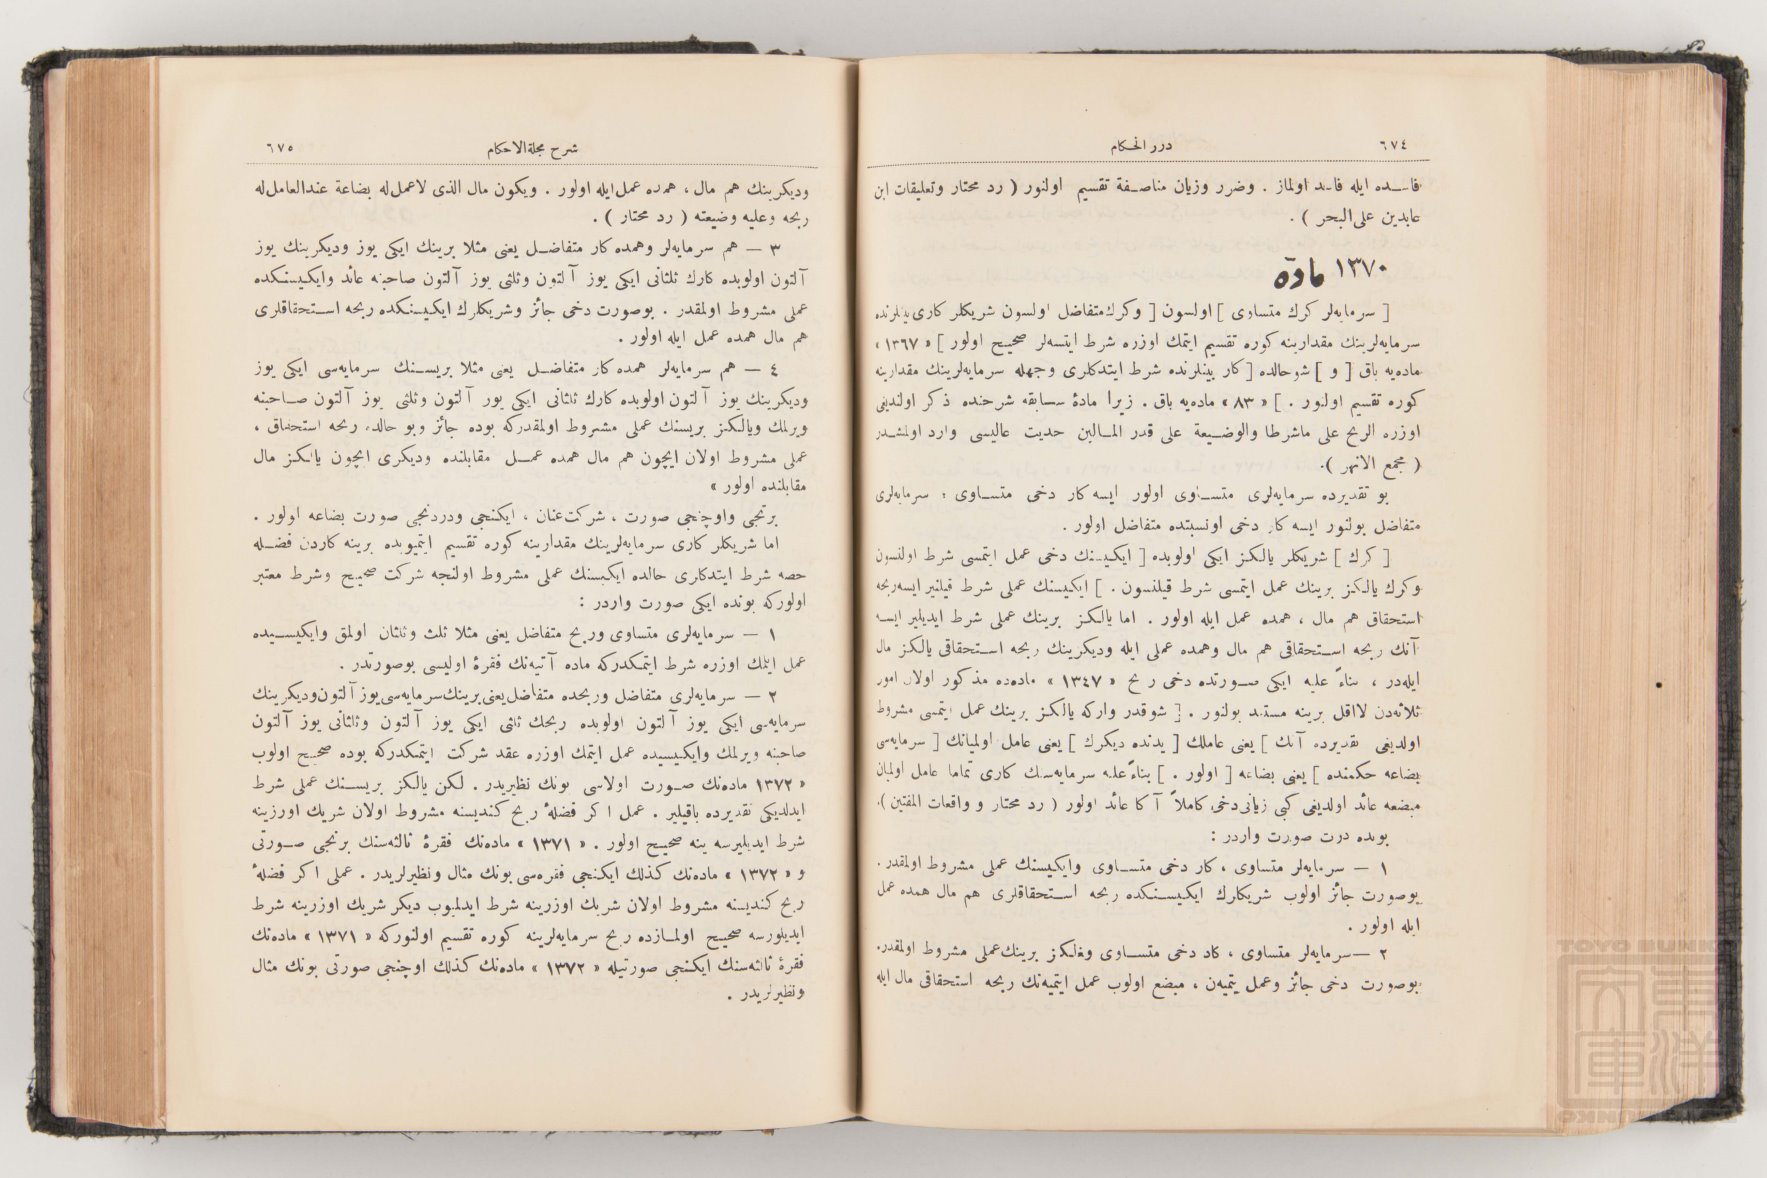 ٦٧٤
درر الحكام
فاسده ايله فاسد اولماز . وضرر وزيان مناصفة تقسيم اولنور ( رد محتار وتعليقات ابن
عابدين على البحر ) .
١٣٧٠ ماده
[ سرمايه‌لر كرك متساوى ] اولسون [ وكرك متفاضل اولسون شريكلر كارى بينلرنده
سرمايه‌لرينك مقدارينه كوره تقسيم ايتمك اوزره شرط ايتسه‌لر صحيح اولور ] « ١٣٦٧ »
ماده‌يه باق [ و ] شوحالده [ كار بينلرنده شرط ايتدكلرى وجهله سرمايه‌لرينك مقدارينه
كوره تقسيم اولنور . ] « ٨٣ » ماده‌يه باق . زيرا مادۀ سابقه شرحنده ذكر اولنديغى
اوزره الربح على ماشرطا والوضيعة على قدر المالين حديث عاليسى وارد اولمشدر
( مجمع الانهر ).
بو تقديرده سرمايه‌لرى متساوى اولور ايسه كار دخى متساوى ؛ سرمايه‌لرى
متفاضل بولنور ايسه كار دخى اونسبتده متفاضل اولور .
[ كرك ] شريكلر يالكز ايكى اولوبده [ ايكيسنك دخى عمل ايتمسى شرط اولنسون
وكرك يالكز برينك عمل ايتمسى شرط قيلنسون . ] ايكيسنك عملى شرط قيلنير ايسه ربحه
استحقاق هم مال ، همده عمل ايله اولور . اما يالكز برينك عملى شرط ايديلير ايسه
آنك ربحه استحقاقى هم مال وهمده عملى ايله وديكرينك ربحه استحقاقى يالكز مال
ايله‌در ، بناءً عليه ايكى صورتده دخى ربح « ١٣٤٧ » ماده‌ده مذكور اولان امور
ثلاثه‌دن لااقل برينه مستند بولنور . [ شوقدر واركه يالكز برينك عمل ايتمسى مشروط
اولديغى تقديرده آنك ] يعنى عاملك [ يدنده ديكرك ] يعنى عامل اولميانك [ سرمايه‌سى
بضاعه حكمنده ] يعنى بضاعه [ اولور . ] بناءً عليه سرمايه‌سنك كارى تماما عامل اولميان
مبضعه عائد اولديغى كبى زيانى دخى كاملاً آكا عائد اولور ( رد محتار و واقعات المفتين ).
بونده درت صورت واردر :
١ — سرمايه‌لر متساوى ، كار دخى متساوى وايكيسنك عملى مشروط اولمقدر .
بوصورت جائز اولوب شريكلرك ايكيسنكده ربحه استحقاقلرى هم مال همده عمل
ايله اولور .
٢ — سرمايه‌لر متساوى ، كار دخى متساوى ويالكز برينك عملى مشروط اولمقدر.
بوصورت دخى جائز وعمل ايتميه‌ن ، مبضع اولوب عمل ايتميه‌نك ربحه استحقاقى مال ايله
شرح مجلة الاحكام
٦٧٥
وديكرينك هم مال ، همده عمل ايله اولور . ويكون مال الذى لاعمل له بضاعة عندالعامل له
ربحه وعليه وضيعته ( رد محتار ) .
٣ — هم سرمايه‌لر وهمده كار متفاضل يعنى مثلا برينك ايكى يوز وديكرينك يوز
آلتون اولوبده كارك ثلثانى ايكى يوز آلتون وثلثى يوز آلتون صاحبنه عائد وايكيسنكده
عملى مشروط اولمقدر . بوصورت دخى جائز وشريكلرك ايكيسنكده ربحه استحقاقلرى
هم مال همده عمل ايله اولور .
٤ — هم سرمايه‌لر همده كار متفاضل يعنى مثلا بريسنك سرمايه‌سى ايكى يوز
وديكرينك يوز آلتون اولوبده كارك ثلثانى ايكى يوز آلتون وثلثى يوز آلتون صاحبنه
ويرلمك ويالكز بريسنك عملى مشروط اولمقدركه بوده جائز وبو حالده ربحه استحقاق ،
عملى مشروط اولان ايچون هم مال همده عمل مقابلنده وديكرى ايچون يالكز مال
مقابلنده اولور »
برنجى واوچنجى صورت ، شركت عنان ، ايكنجى ودردنجى صورت بضاعه اولور .
اما شريكلر كارى سرمايه‌لرينك مقدارينه كوره تقسيم ايتميوبده برينه كاردن فضله
حصه شرط ايتدكلرى حالده ايكيسنك عملى مشروط اولنجه شركت صحيح وشرط معتبر
اولوركه بونده ايكى صورت واردر :
١ — سرمايه‌لرى متساوى وربح متفاضل يعنى مثلا ثلث وثلثان اولمق وايكيسيده
عمل ايتمك اوزره شرط ايتمكدركه ماده آتيه‌نك فقرۀ اوليسى بوصورتدر .
٢ — سرمايه‌لرى متفاضل وربحده متفاضل يعنى برينك سرمايه‌سى يوز آلتون وديكرينك
سرمايه‌سى ايكى يوز آلتون اولوبده ربحك ثلثى ايكى يوز آلتون وثلثانى يوز آلتون
صاحبنه ويرلمك وايكيسيده عمل ايتمك اوزره عقد شركت ايتمكدركه بوده صحيح اولوب
« ١٣٧٢ ماده‌نك صورت اولاسى بونك نظيريدر . لكن يالكز بريسنك عملى شرط
ايدلديكى تقديرده باقيلير . عمل اكر فضلۀ ربح كنديسنه مشروط اولان شريك اوزرينه
شرط ايديليرسه ينه صحيح اولور . « ١٣٧١ » ماده‌نك فقرۀ ثالثه‌سنك برنجى صورتى
و « ١٣٧٢ » ماده‌نك كذلك ايكنجى فقره‌سى بونك مثال ونظيرلريدر . عملى اكر فضلۀ
ربح كنديسنه مشروط اولان شريك اوزرينه شرط ايدلميوب ديكر شريك اوزرينه شرط
ايديلورسه صحيح اولمازده ربح سرمايه‌لرينه كوره تقسيم اولنوركه « ١٣٧١ » ماده‌نك
فقرۀ ثالثه‌سنك ايكنجى صورتيله « ١٣٧٢ » ماده‌نك كذلك اوچنجى صورتى بونك مثال
ونظيرلريدر .
TOYO BUNKO